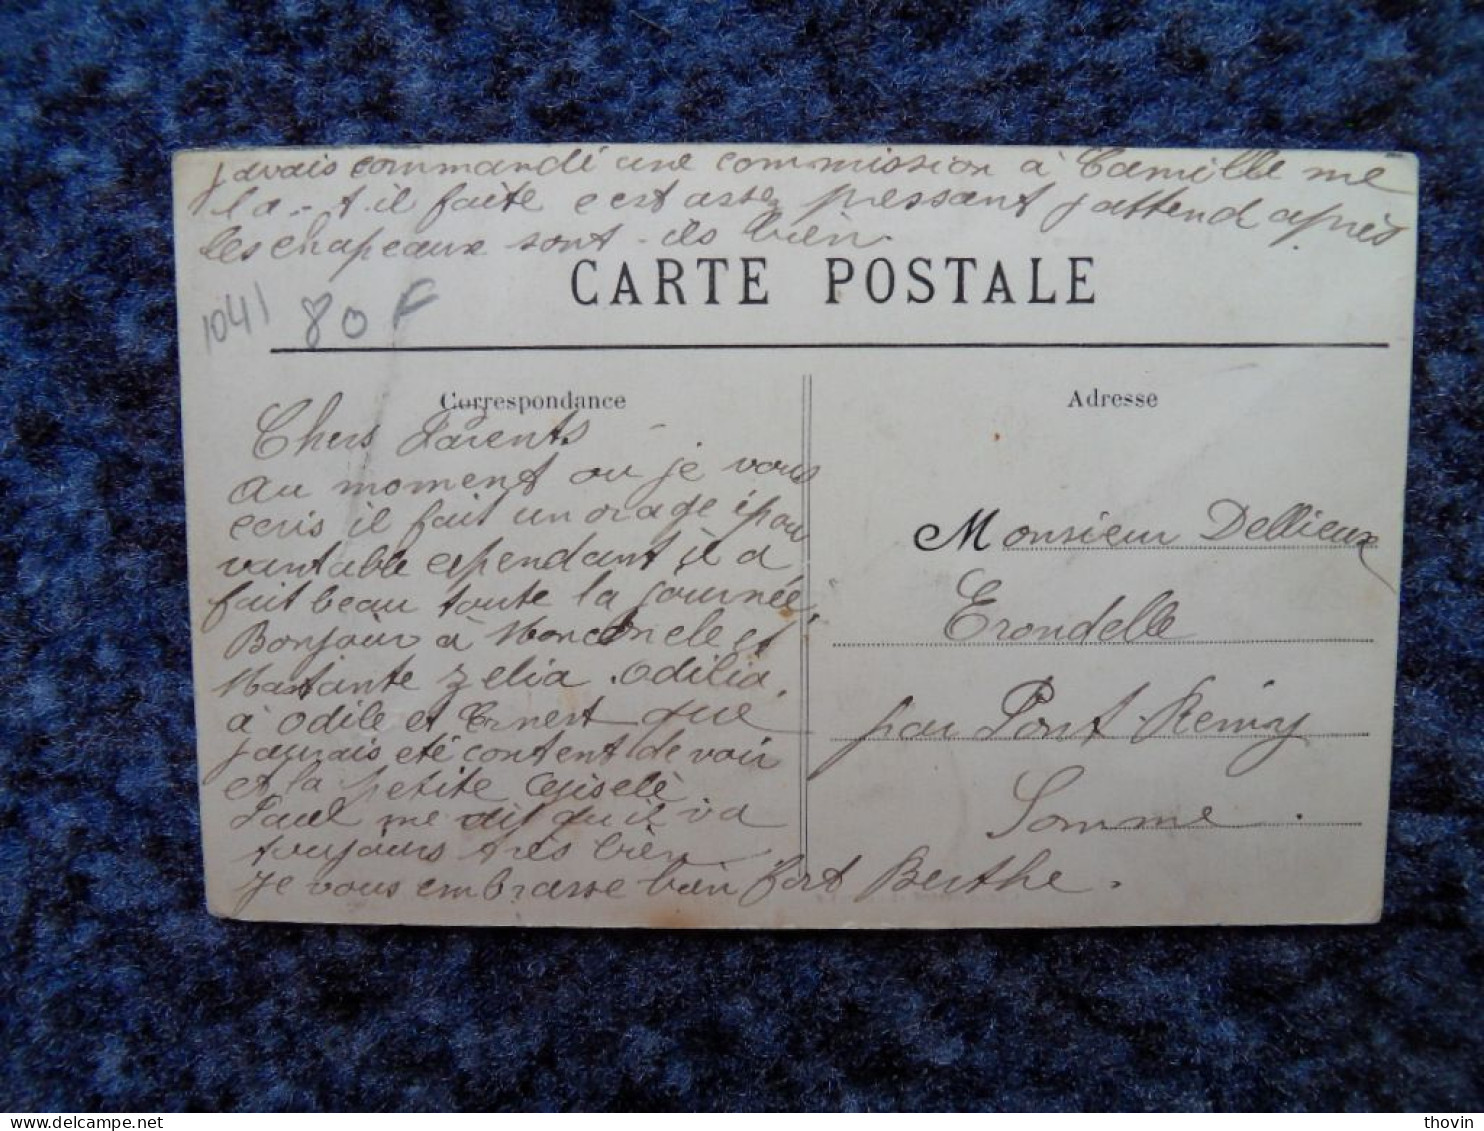 javais commandé une commission à Camille me
la-t-il faite c est assez pressant j attend après
les chapeaux sont-ils bien
CARTE POSTALE
1041 80 F
Correspondance
Chers Parents
au moment ou je vous
ecris il fait un orage épou
vantable cependant il a
fait beau toute la journée,
Bonjour à Mon oncle et
Ma tante Zelia. Odilia,
à Odile et Ernest que
jaurais eté content de voir
et la petite Gisele
Paul me dit qu il va
toujours très bien
je vous embrasse bien fort Berthe.
Adresse
Monsieur Dellieux
Erondelle
par Pont-Remy
Somme.
thovin